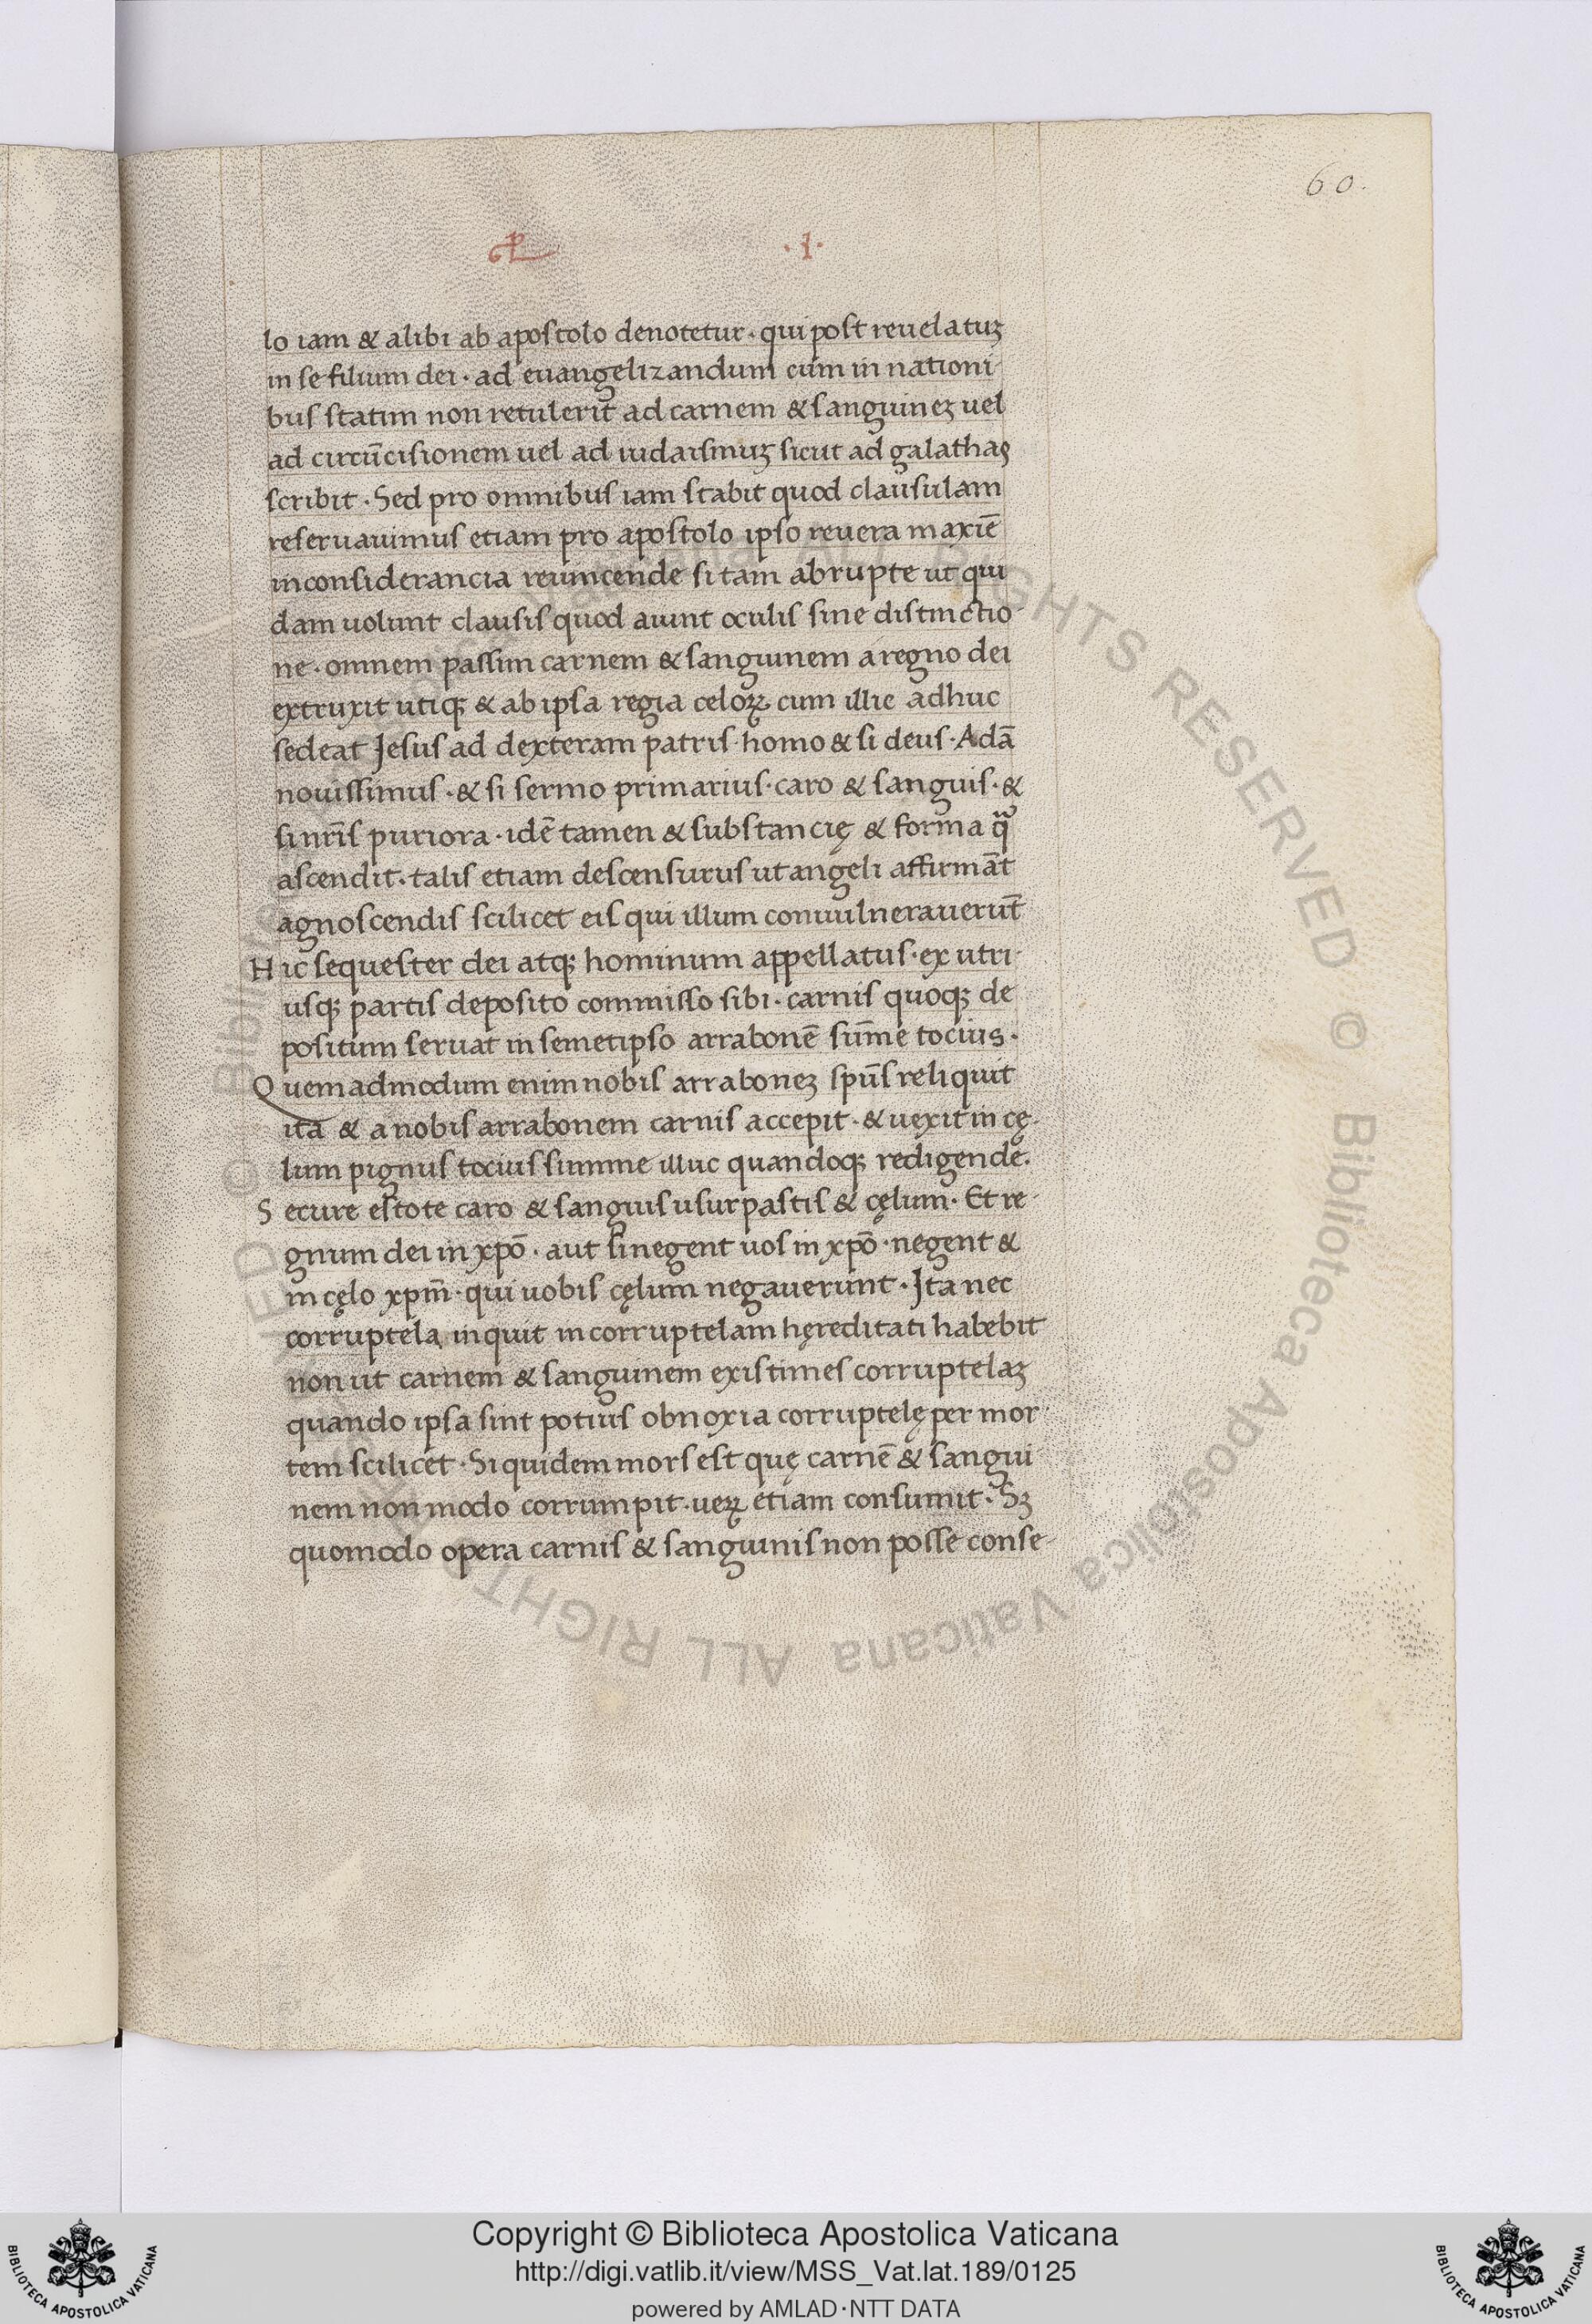 60.
·I·
lo iam & alibi ab apostolo denotetur · qui post reuelatuȝ
in se filium dei · ad euangelizandum eum in nationi-
bus statim non retulerit ad carnem & sanguineȝ uel
ad circūcisionem uel ad iudaismuȝ sicut ad galathas
scribit · Sed pro omnibus iam stabit quod clausulam
reseruauimus etiam pro apostolo ipso reuera maxīe
inconsiderancia reuincende si tam abrupte ut qui
dam uolunt clausis quod aiunt oculis sine distinctio-
ne · omnem passim carnem & sanguinem a regno dei
extruxit utiqꝫ & ab ipsa regia celoꝝ cum illic adhuc
sedeat Jesus ad dexteram patris · homo & si deus · Adā
nouissimus · & si sermo primarius · caro & sanguis · &
si nr̄is puriora · idē tamen & substancię & forma qᷓ
ascendit · talis etiam descensurus ut angeli affirmāt
agnoscendis scilicet eis qui illum conuulnerauerūt
Hic sequester dei atqꝫ hominum appellatus · ex utri-
usqꝫ partis deposito commisso sibi · carnis quoqꝫ de
positum seruat in semetipso arrabonē sūme tocius ·
Quemadmodum enim nobis arraboneȝ spūs reliquit
ita & a nobis arrabonem carnis accepit · & uexit in cę-
lum pignus tocius summe illuc quandoqꝫ redigende.
Secure estote caro & sanguis usurpastis & cęlum · Et re-
gnum dei in xpō · aut si negent uos in xpō · negent &
in cęlo xpm̄ · qui uobis cęlum negauerunt · Ita nec
corruptela inquit incorruptelam hęreditati habebit
non ut carnem & sanguinem existimes corruptelaȝ
quando ipsa sint potius obnoxia corruptelę per mor-
tem scilicet · Siquidem mors est quę carnē & sangui-
nem non modo corrumpit · ueꝝ etiam consumit · Sȝ
quomodo opera carnis & sanguinis non posse conse-
© Biblioteca Apostolica Vaticana ALL RIGHTS RESERVED
Copyright © Biblioteca Apostolica Vaticana
http://digi.vatlib.it/view/MSS_Vat.lat.189/0125
powered by AMLAD·NTT DATA
BIBLIOTECA APOSTOLICA VATICANA
BIBLIOTECA APOSTOLICA VATICANA